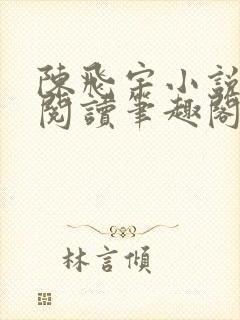 陳飛宇小說
閱讀筆趣閣
林言傾